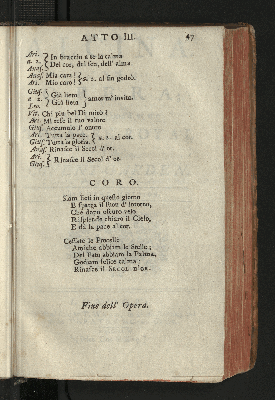 ATTO III. 47
Ari. In braccio a te la calma
a. 2. Del cor, del sen, dell' alma
Anas.
Anas. Mia cara!
Ari. Mio caro! a. 2. al fin godrò.
Gius. Già lieto
a 2. amor m' invita.
Leo. Già lieta
Vit. Chi più bel Dì mirò?
Ari. Mi rese il tuo valore
Gius. Accumulò l' onore
Ari. Tutta la pace. a. 2. al cor.
Gius. Tutta la gloria.
Anas. Rinasce il Secol d' or.
Ari. Rinasce il Secol d' or.
Gius.
CORO.
Siam lieti in questo giorno
E sparga il fior d' intorno,
Che dopo oscuro velo
Risplende chiaro il Cielo,
E dà la pace al cor.
Cessate le Procelle
Amiche abbiam le Stelle;
Del Fato abbiam la Palma,
Godiam felice calma;
Rinasce il SECOL D'OR.
Fine dell' Opera.